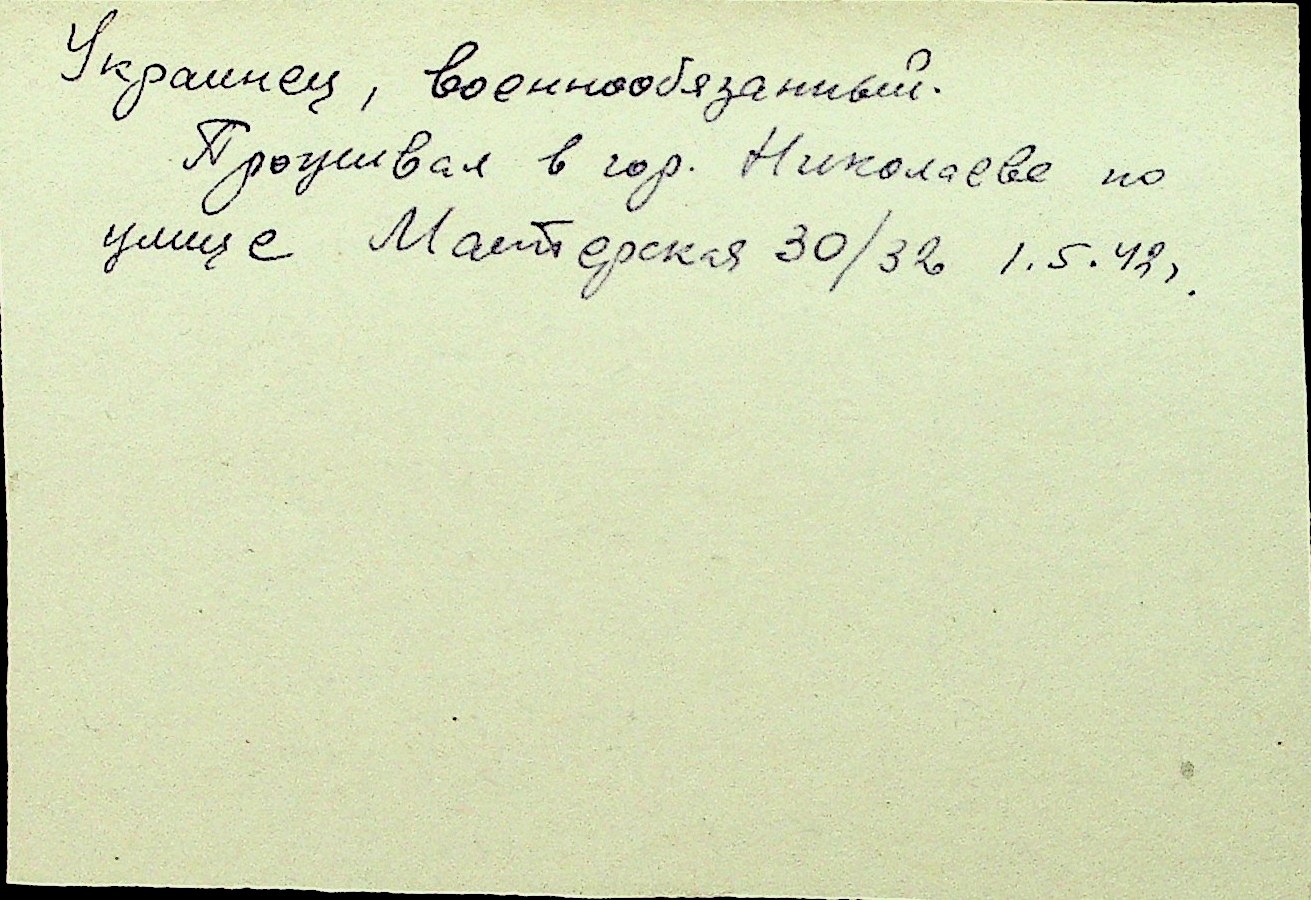 Украинец, военнообязанный.
Проживал в гор. Николаеве по
улице Мастерская 30/32 1.5.42г.